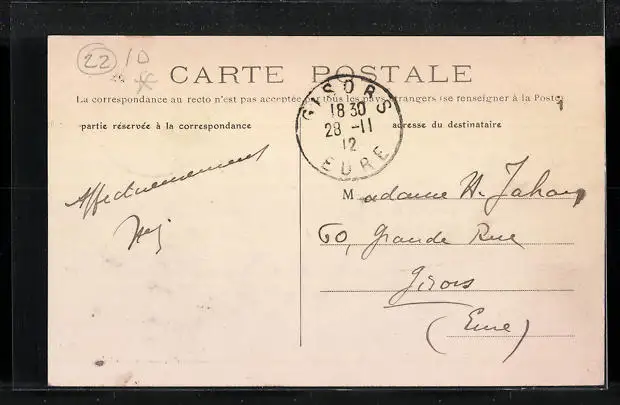 22 10
CARTE POSTALE
La correspondance au recto n'est pas acceptée par tous les pays étrangers (se renseigner à la Poste)
partie réservée à la correspondance
adresse du destinataire
GISORS
18 30
28 -11
12
EURE
Affectueusement
Madame H.
60, Grande Rue
Gisors
(Eure)